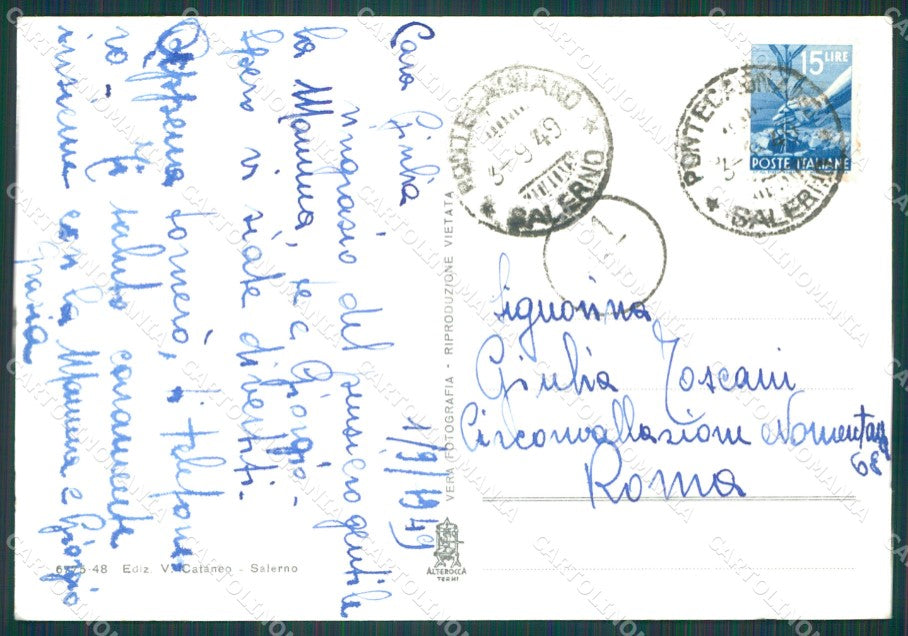 Cara Giulia 1/9/1949
ringrazio del pensiero gentile
la Mamma, te e Giorgio -
Spero vi siate divertiti.
Appena tornerò, ti telefone
rò - Ti saluto caramente
insieme con la Mamma e Giorgio
Grazia
VERA FOTOGRAFIA - RIPRODUZIONE VIETATA
6875-48 Ediz. V. Cataneo - Salerno
ALTEROCCA
TERNI
PONTECAGNANO
3-9 49
SALERNO
PONTECAGNANO
SALERNO
1
15 LIRE
POSTE ITALIANE
Signorina
Giulia Toscani
Circonvallazione Nomentana
68
Roma
CARTOLINOMANIA